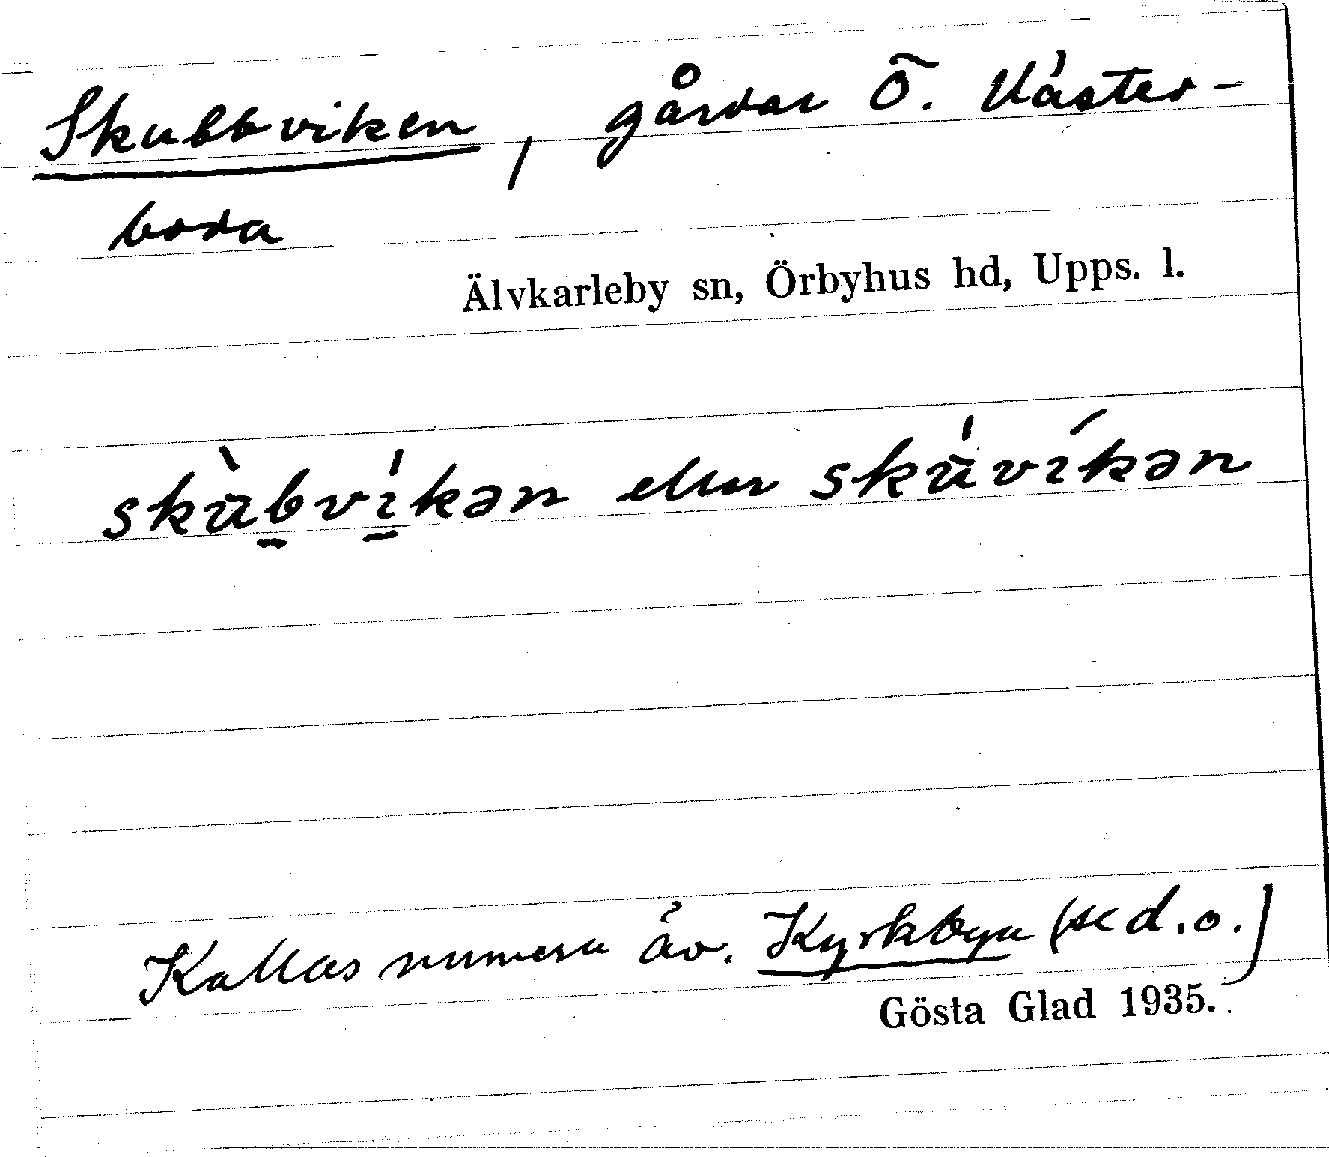 Skubbviken, gårdar Ö. Väster-
boda
Älvkarleby sn, Örbyhus hd, Upps. l.
skùbvíkən eller skúvíkən
Kallas numera äv. Kyrkbyn (se d.o.)
Gösta Glad 1935.